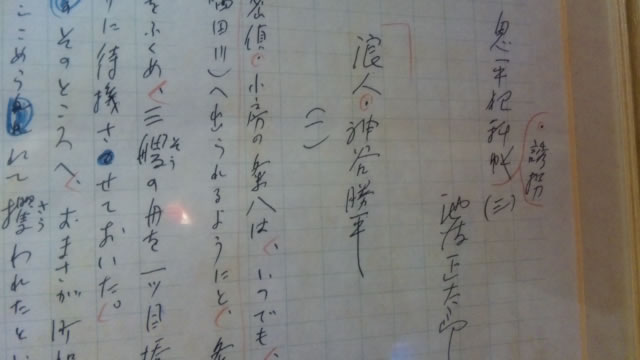 ・誘拐
鬼平犯科帳(三)
池波正太郎
浪人・神谷勝平
(二)
密偵・小房の粂八は、いつでも、
隅田川)へ出られるようにと、粂
をふくめ、三艘の舟を一ツ目橋
りに待機させておいた。
そのところへ、おまさが
れて攫われたとい